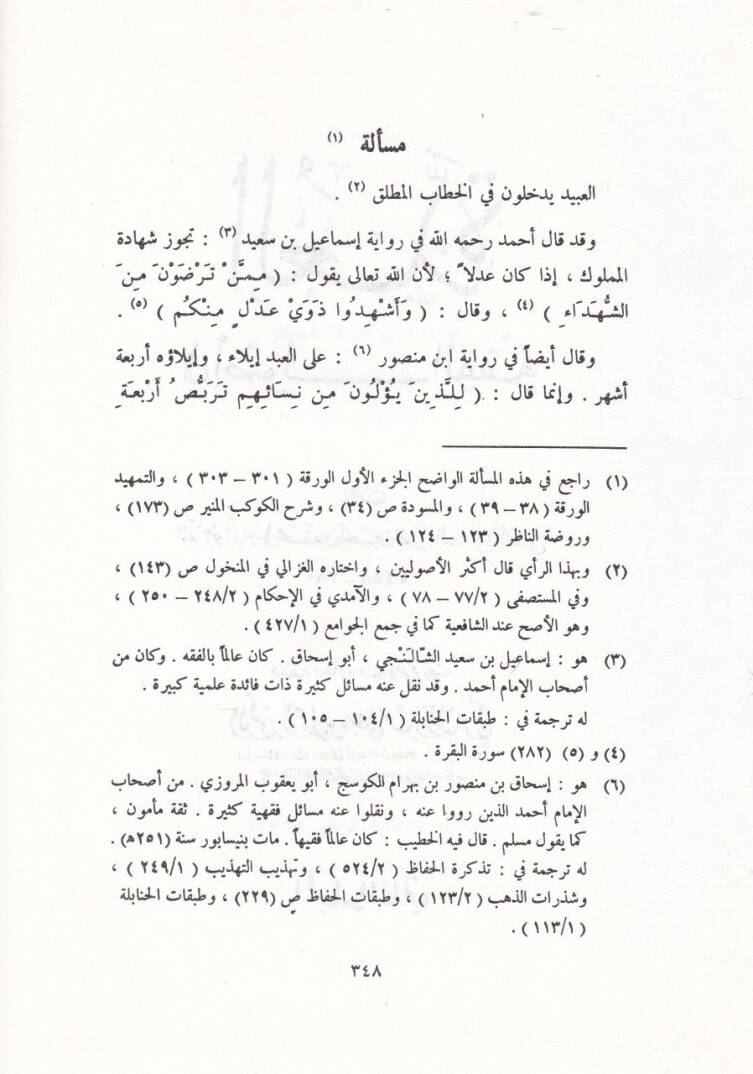 مسألة (١)
العبيد يدخلون في الخطاب المطلق (٢) .
وقد قال أحمد رحمه الله في رواية إسماعيل بن سعيد (٣) : تجوز شهادة
المملوك ، إذا كان عدلاً ؛ لأن الله تعالى يقول : ( مِمَّنْ تَرْضَوْنَ مِنَ
الشُّهَدَاءِ ) (٤) ، وقال : ( وَأَشْهِدُوا ذَوَيْ عَدْلٍ مِنْكُم ) (٥) .
وقال أيضاً في رواية ابن منصور (٦) : على العبد إيلاء ، وإيلاؤه أربعة
أشهر . وإنما قال : ( لِلَّذِينَ يُؤْلُونَ مِن نِسَائِهِم تَرَبُّصُ أَرْبَعَةِ
(١) راجع في هذه المسألة الواضح الجزء الأول الورقة ( ٣٠١ – ٣٠٣ ) ، والتمهيد
الورقة ( ٣٨ – ٣٩ ) ، والمسودة ص (٣٤) ، وشرح الكوكب المنير ص (١٧٣) ،
وروضة الناظر ( ١٢٣ – ١٢٤ ) .
(٢) وبهذا الرأي قال أكثر الأصوليين ، واختاره الغزالي في المنخول ص (١٤٣) ،
وفي المستصفى ( ٧٧/٢ – ٧٨ ) ، والآمدي في الإحكام ( ٢٤٨/٢ – ٢٥٠ ) ،
وهو الأصح عند الشافعية كما في جمع الجوامع ( ٤٢٧/١ ) .
(٣) هو : إسماعيل بن سعيد الشّالَنْجي ، أبو إسحاق . كان عالماً بالفقه . وكان من
أصحاب الإمام أحمد . وقد نقل عنه مسائل كثيرة ذات فائدة علمية كبيرة .
له ترجمة في : طبقات الحنابلة ( ١٠٤/١ – ١٠٥ ) .
(٤) و (٥) (٢٨٢) سورة البقرة .
(٦) هو : إسحاق بن منصور بن بهرام الكوسج ، أبو يعقوب المروزي . من أصحاب
الإمام أحمد الذين رووا عنه ، ونقلوا عنه مسائل فقهية كثيرة . ثقة مأمون ،
كما يقول مسلم . قال فيه الخطيب : كان عالماً فقيهاً . مات بنيسابور سنة (٢٥١ﻫ) .
له ترجمة في : تذكرة الحفاظ ( ٥٢٤/٢ ) ، وتهذيب التهذيب ( ٢٤٩/١ ) ،
وشذرات الذهب ( ١٢٣/٢ ) ، وطبقات الحفاظ ص (٢٢٩) ، وطبقات الحنابلة
( ١١٣/١ ) .
٣٤٨